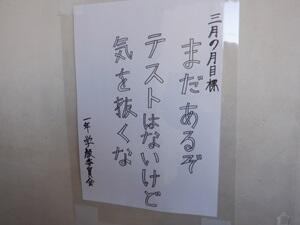 三月の月目標
まだあるぞ
テストはないけど
気を抜くな
一年学級委員会